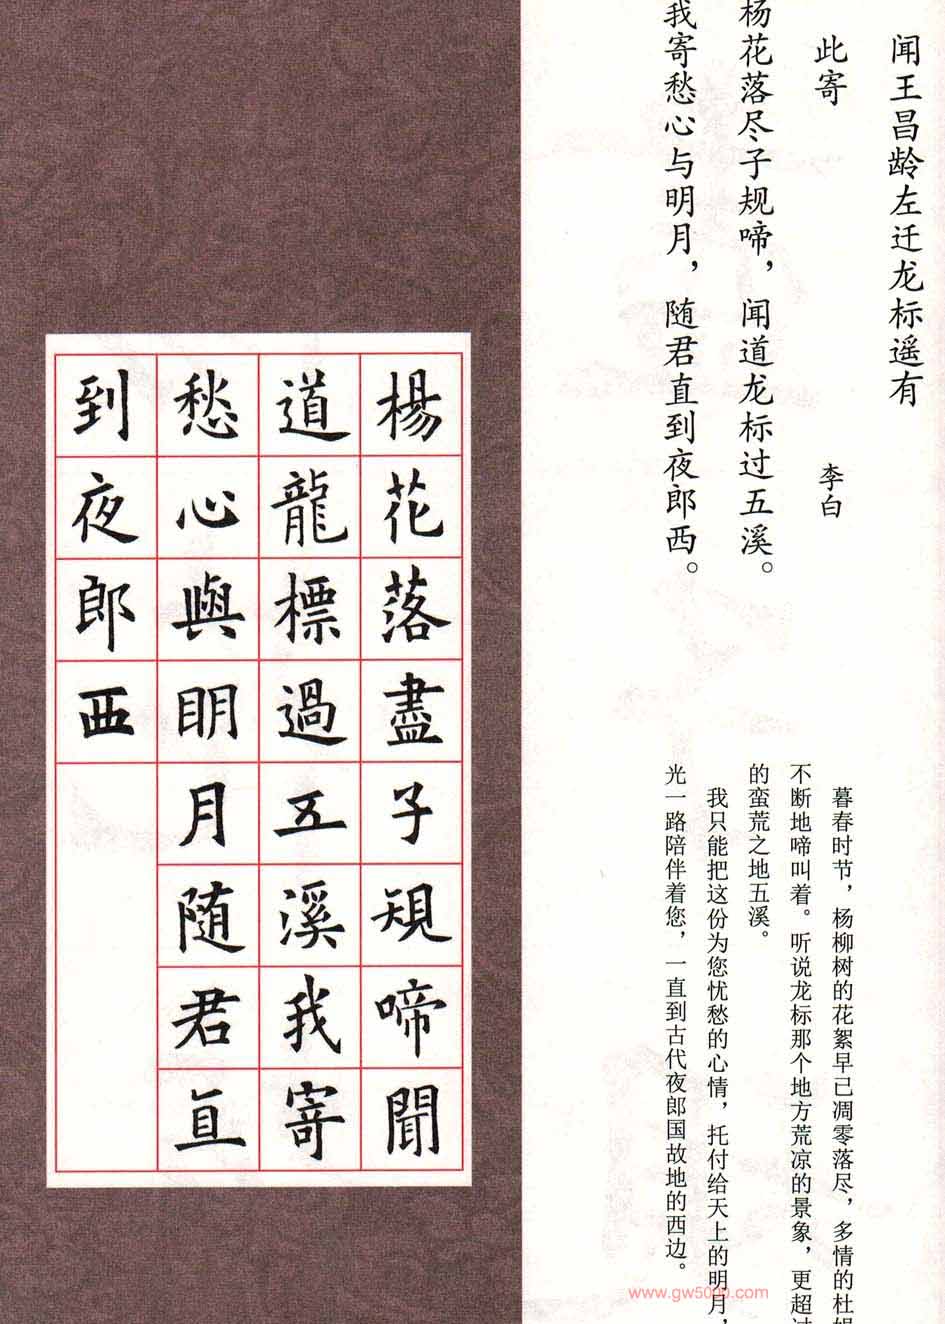 闻王昌龄左迁龙标遥有
此寄
李白
杨花落尽子规啼，闻道龙标过五溪。
我寄愁心与明月，随君直到夜郎西。
暮春时节，杨柳树的花絮早已凋零落尽，多情的杜
不断地啼叫着。听说龙标那个地方荒凉的景象，更超
的蛮荒之地五溪。
我只能把这份为您忧愁的心情，托付给天上的明月，
光一路陪伴着您，一直到古代夜郎国故地的西边。
楊花落盡子規啼聞
道龍標過五溪我寄
愁心與眀月随君直
到夜郎西
www.gw5000.com